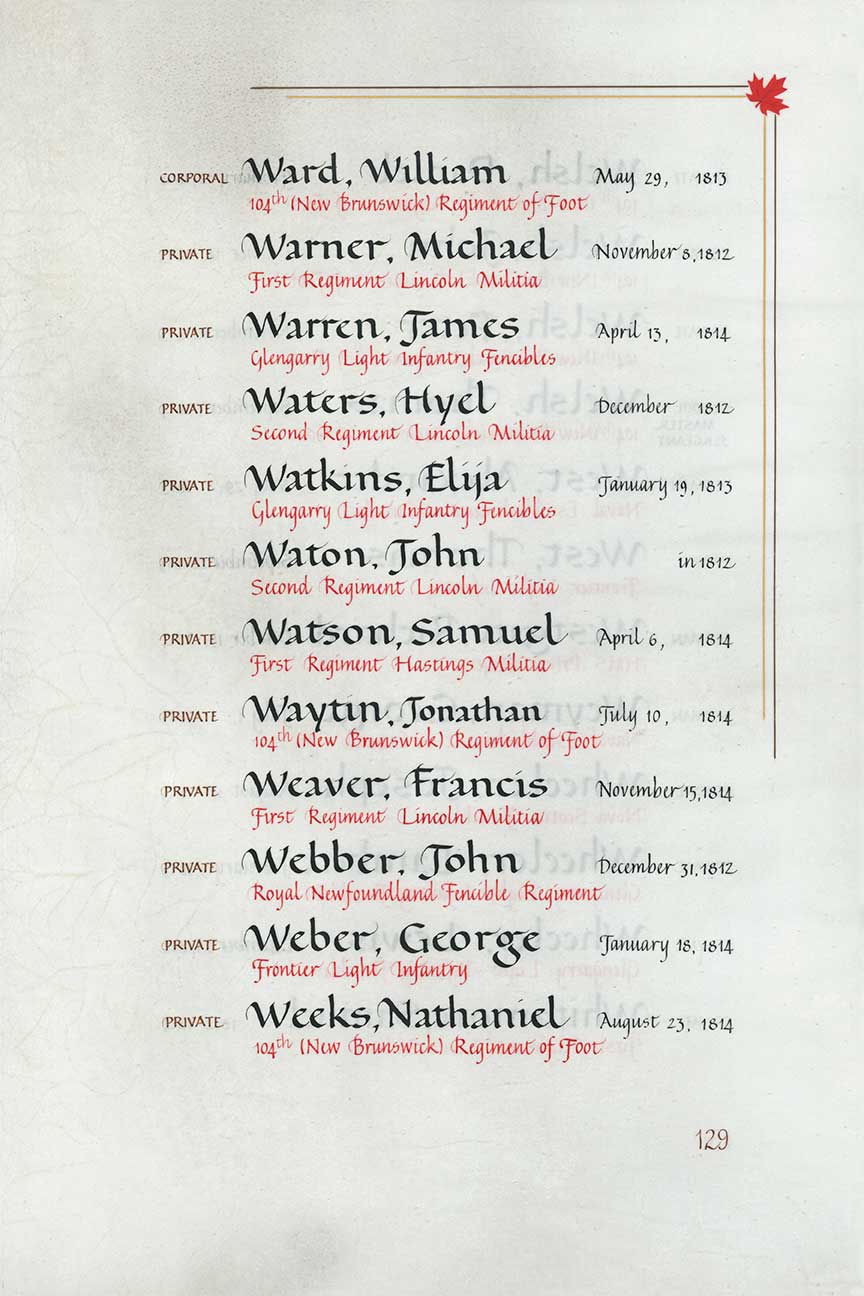 CORPORAL Ward, William May 29, 1813
104th (New Brunswick) Regiment of Foot
PRIVATE Warner, Michael November 8, 1812
First Regiment Lincoln Militia
PRIVATE Warren, James April 13, 1814
Glengarry Light Infantry Fencibles
PRIVATE Waters, Hyel December 1812
Second Regiment Lincoln Militia
PRIVATE Watkins, Elija January 19, 1813
Glengarry Light Infantry Fencibles
PRIVATE Waton, John in 1812
Second Regiment Lincoln Militia
PRIVATE Watson, Samuel April 6, 1814
First Regiment Hastings Militia
PRIVATE Waytin, Jonathan July 10, 1814
104th (New Brunswick) Regiment of Foot
PRIVATE Weaver, Francis November 15, 1814
First Regiment Lincoln Militia
PRIVATE Webber, John December 31, 1812
Royal Newfoundland Fencible Regiment
PRIVATE Weber, George January 18, 1814
Frontier Light Infantry
PRIVATE Weeks, Nathaniel August 23, 1814
104th (New Brunswick) Regiment of Foot
129